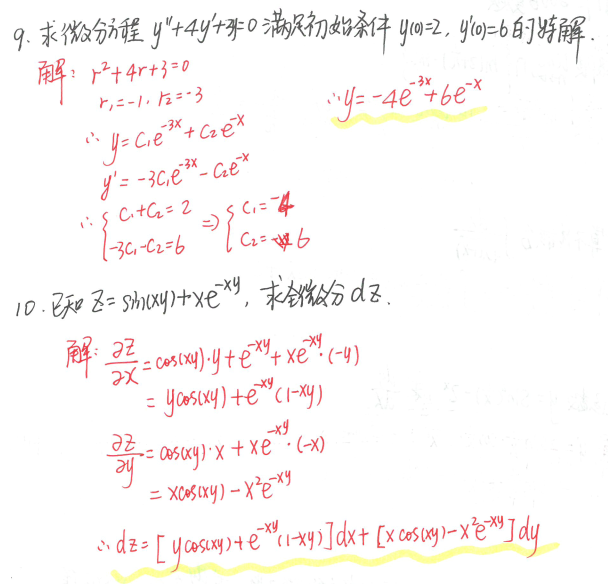 9. 求微分方程 y''+4y'+3y=0 满足初始条件 y(0)=2, y'(0)=6 的特解.
解: r²+4r+3=0
r₁=-1, r₂=-3
∴ y=C₁e^{-3x}+C₂e^{-x}
y'=-3C₁e^{-3x}-C₂e^{-x}
∴ { C₁+C₂=2  -3C₁-C₂=6 ⇒ { C₁=-4  C₂=6
∴ y=-4e^{-3x}+6e^{-x}
10. 已知 Z=sin(xy)+xe^{-xy}, 求全微分 dz.
解: ∂z/∂x=cos(xy)·y+e^{-xy}+xe^{-xy}·(-y)
=ycos(xy)+e^{-xy}(1-xy)
∂z/∂y=cos(xy)·x+xe^{-xy}·(-x)
=xcos(xy)-x²e^{-xy}
∴ dz=[ycos(xy)+e^{-xy}(1-xy)]dx+[xcos(xy)-x²e^{-xy}]dy